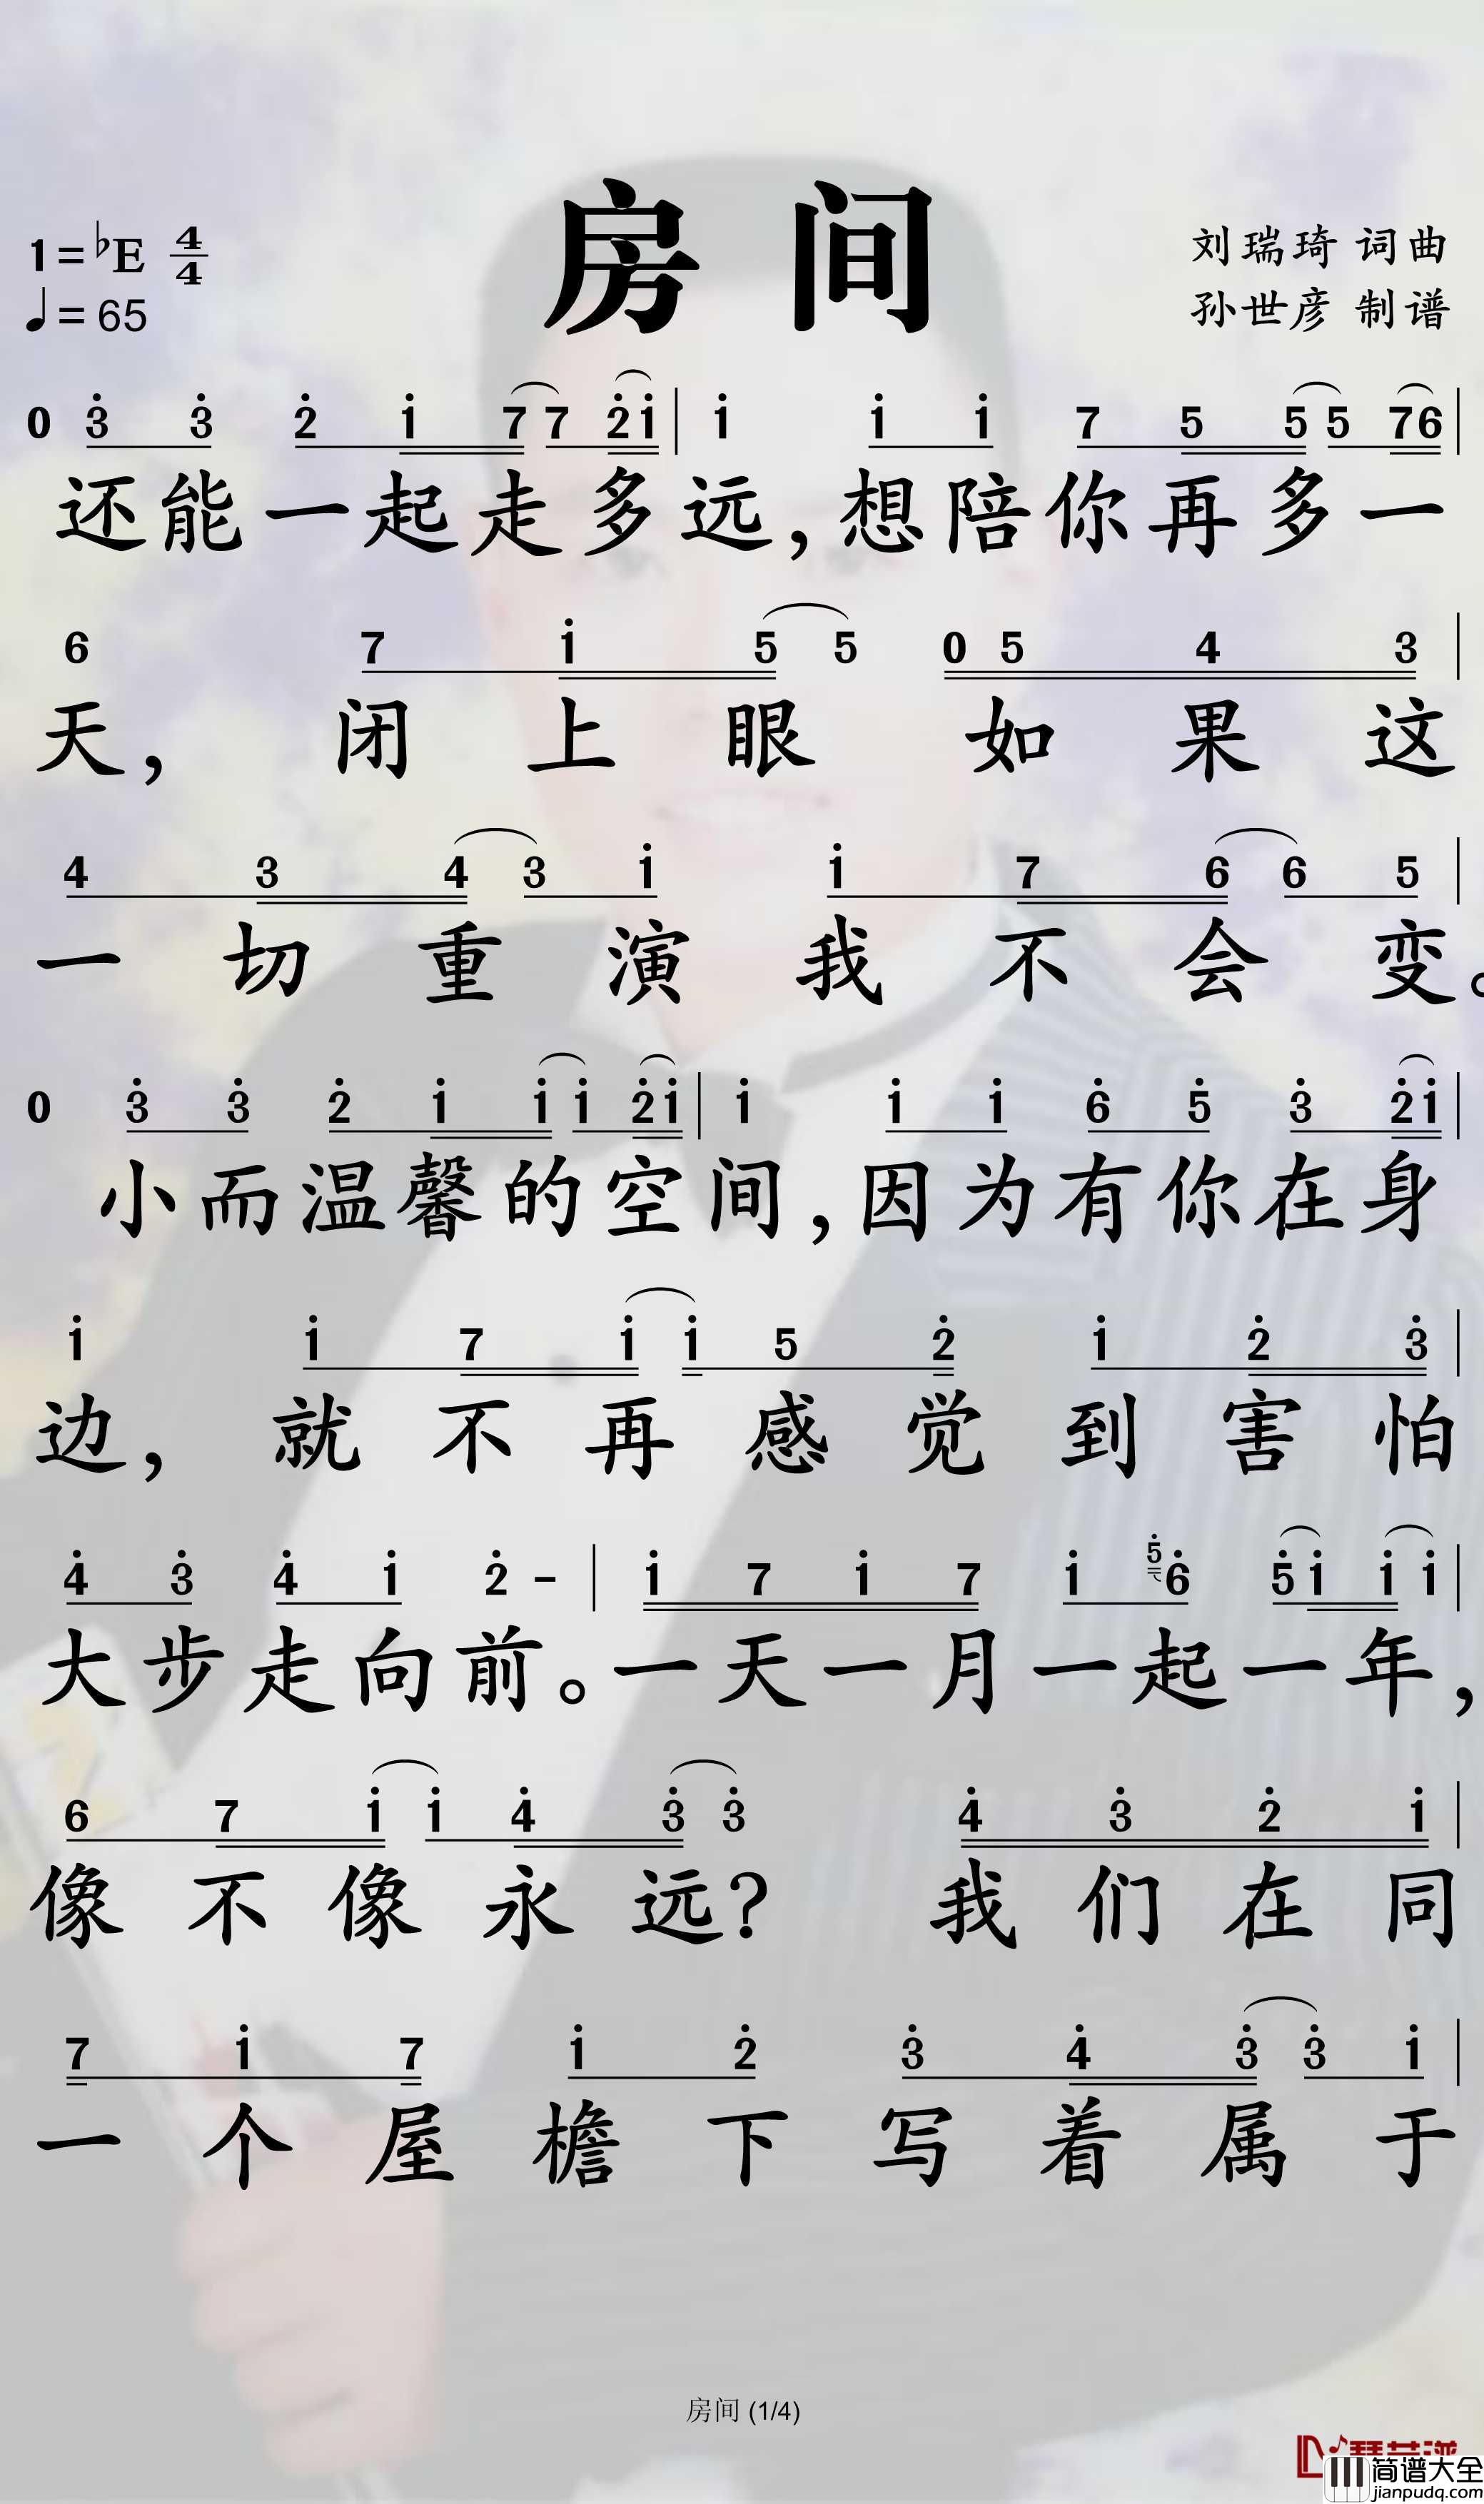 房 间
1=♭E 4/4
♩=65
刘瑞琦 词曲
孙世彦 制谱
0 3̇ 3̇ 2̇ 1̇ 7 7 2̇ 1̇ | 1̇ 1̇ 1̇ 7 5 5 5 7 6 |
还能一起走多远,想陪你再多一
6 7 1̇ 5 5 0 5 4 3 |
天, 闭上眼 如果这
4 3 4 3 1̇ 1̇ 7 6 6 5 |
一切重演我不会变。
0 3̇ 3̇ 2̇ 1̇ 1̇ 1̇ 2̇ 1̇ | 1̇ 1̇ 1̇ 6̇ 5̇ 3̇ 2̇ 1̇ |
小而温馨的空间,因为有你在身
1̇ 1̇ 7 1̇ 1̇ 5 2̇ 1̇ 2̇ 3̇ |
边, 就不再感觉到害怕
4̇ 3̇ 4̇ 1̇ 2̇ - | 1̇ 7 1̇ 7 1̇ 5̇ 6̇ 5̇ 1̇ 1̇ 1̇ |
大步走向前。一天一月一起一年,
6 7 1̇ 1̇ 4̇ 3̇ 3̇ 4̇ 3̇ 2̇ 1̇ |
像不像永远? 我们在同
7 1̇ 7 1̇ 2̇ 3̇ 4̇ 3̇ 3̇ 1̇ |
一个屋檐下写着属于
房间 (1/4)
简谱大全
jianpudq.com